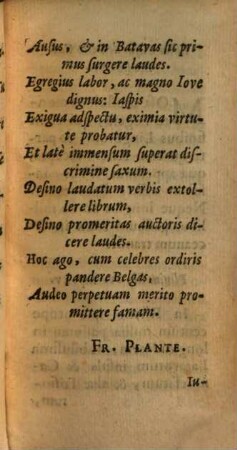 Ausus, & in Batavas sic pri-
mus surgere laudes.
Egregius labor, ac magno Iove
dignus: Iaspis
Exigua adspectu, eximia virtu-
te probatur,
Et latè immensum superat dis-
crimine saxum.
Desino laudatum verbis extol-
lere librum,
Desino promeritas auctoris di-
cere laudes.
Hoc ago, cum celebres ordiris
pandere Belgas,
Audeo perpetuam merito pro-
mittere famam.
FR. PLANTE.
Iu-